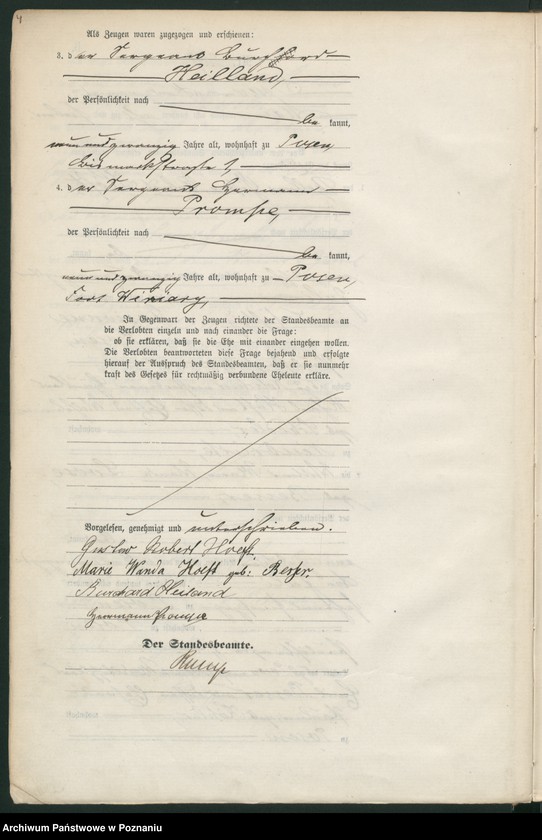 4
Als Zeugen waren zugezogen und erschienen:
3. der Sergeant Burchhard
Heilland,
der Persönlichkeit nach
be kannt,
neunundzwanzig Jahre alt, wohnhaft zu Posen
Bismarckstraße 1,
4. der Sergeant Hermann
Prompe,
der Persönlichkeit nach
be kannt,
neunundzwanzig Jahre alt, wohnhaft zu Posen,
Fort Winiary,
In Gegenwart der Zeugen richtete der Standesbeamte an
die Verlobten einzeln und nach einander die Frage:
ob sie erklären, daß sie die Ehe mit einander eingehen wollen.
Die Verlobten beantworteten diese Frage bejahend und erfolgte
hierauf der Ausspruch des Standesbeamten, daß er sie nunmehr
kraft des Gesetzes für rechtmäßig verbundene Eheleute erkläre.
Vorgelesen, genehmigt und unterschrieben.
Gustav Robert Hoeft.
Marie Wanda Hoeft geb:
Burchard Heiland
Hermann Prompe
Der Standesbeamte.
Archiwum Państwowe w Poznaniu